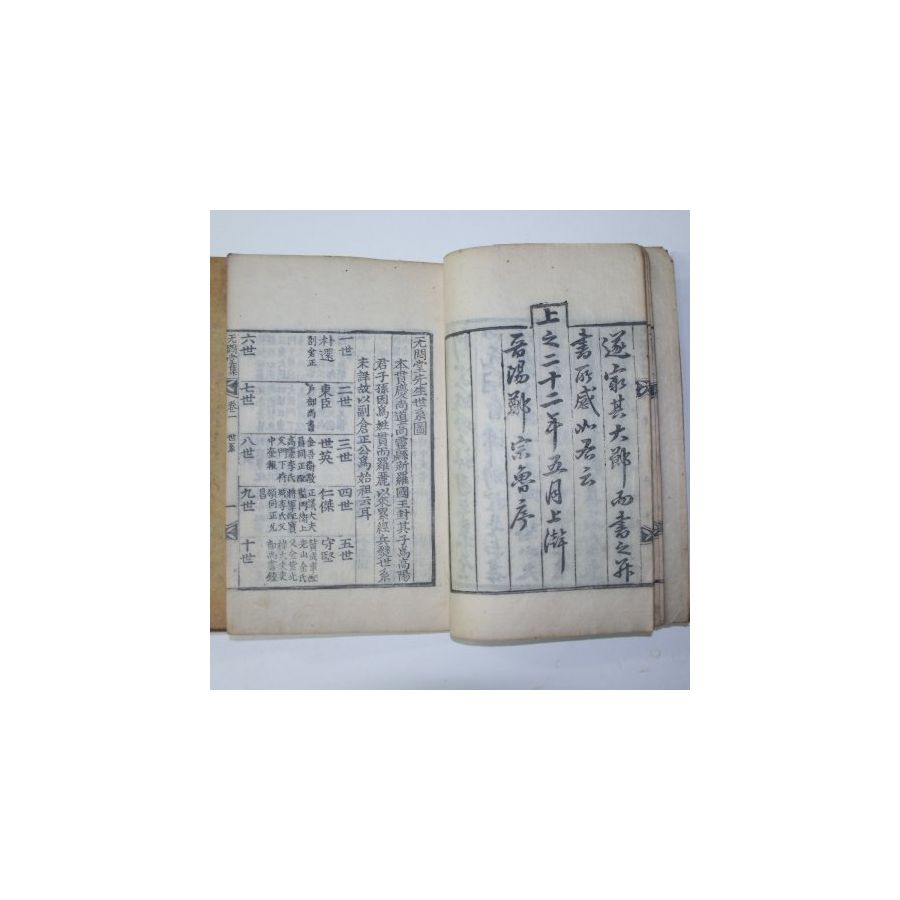 遂最其大鄙而書之并
書所感如右云
上之二十二年五月上澣
晋陽鄭宗魯序
无悶堂先生世系圖
本貫慶尚道高靈縣新羅國王封其子爲高陽
君子孫因爲姓貫而羅麗以來累經兵燹世系
未詳故以副倉正公爲始祖云耳
一世
二世
三世
四世
五世
朴還
副倉正
東臣
戶部尚書
世英
仁傑
正議大夫
守堅
六世
七世
八世
九世
十世
无悶堂集
卷一
世系
一